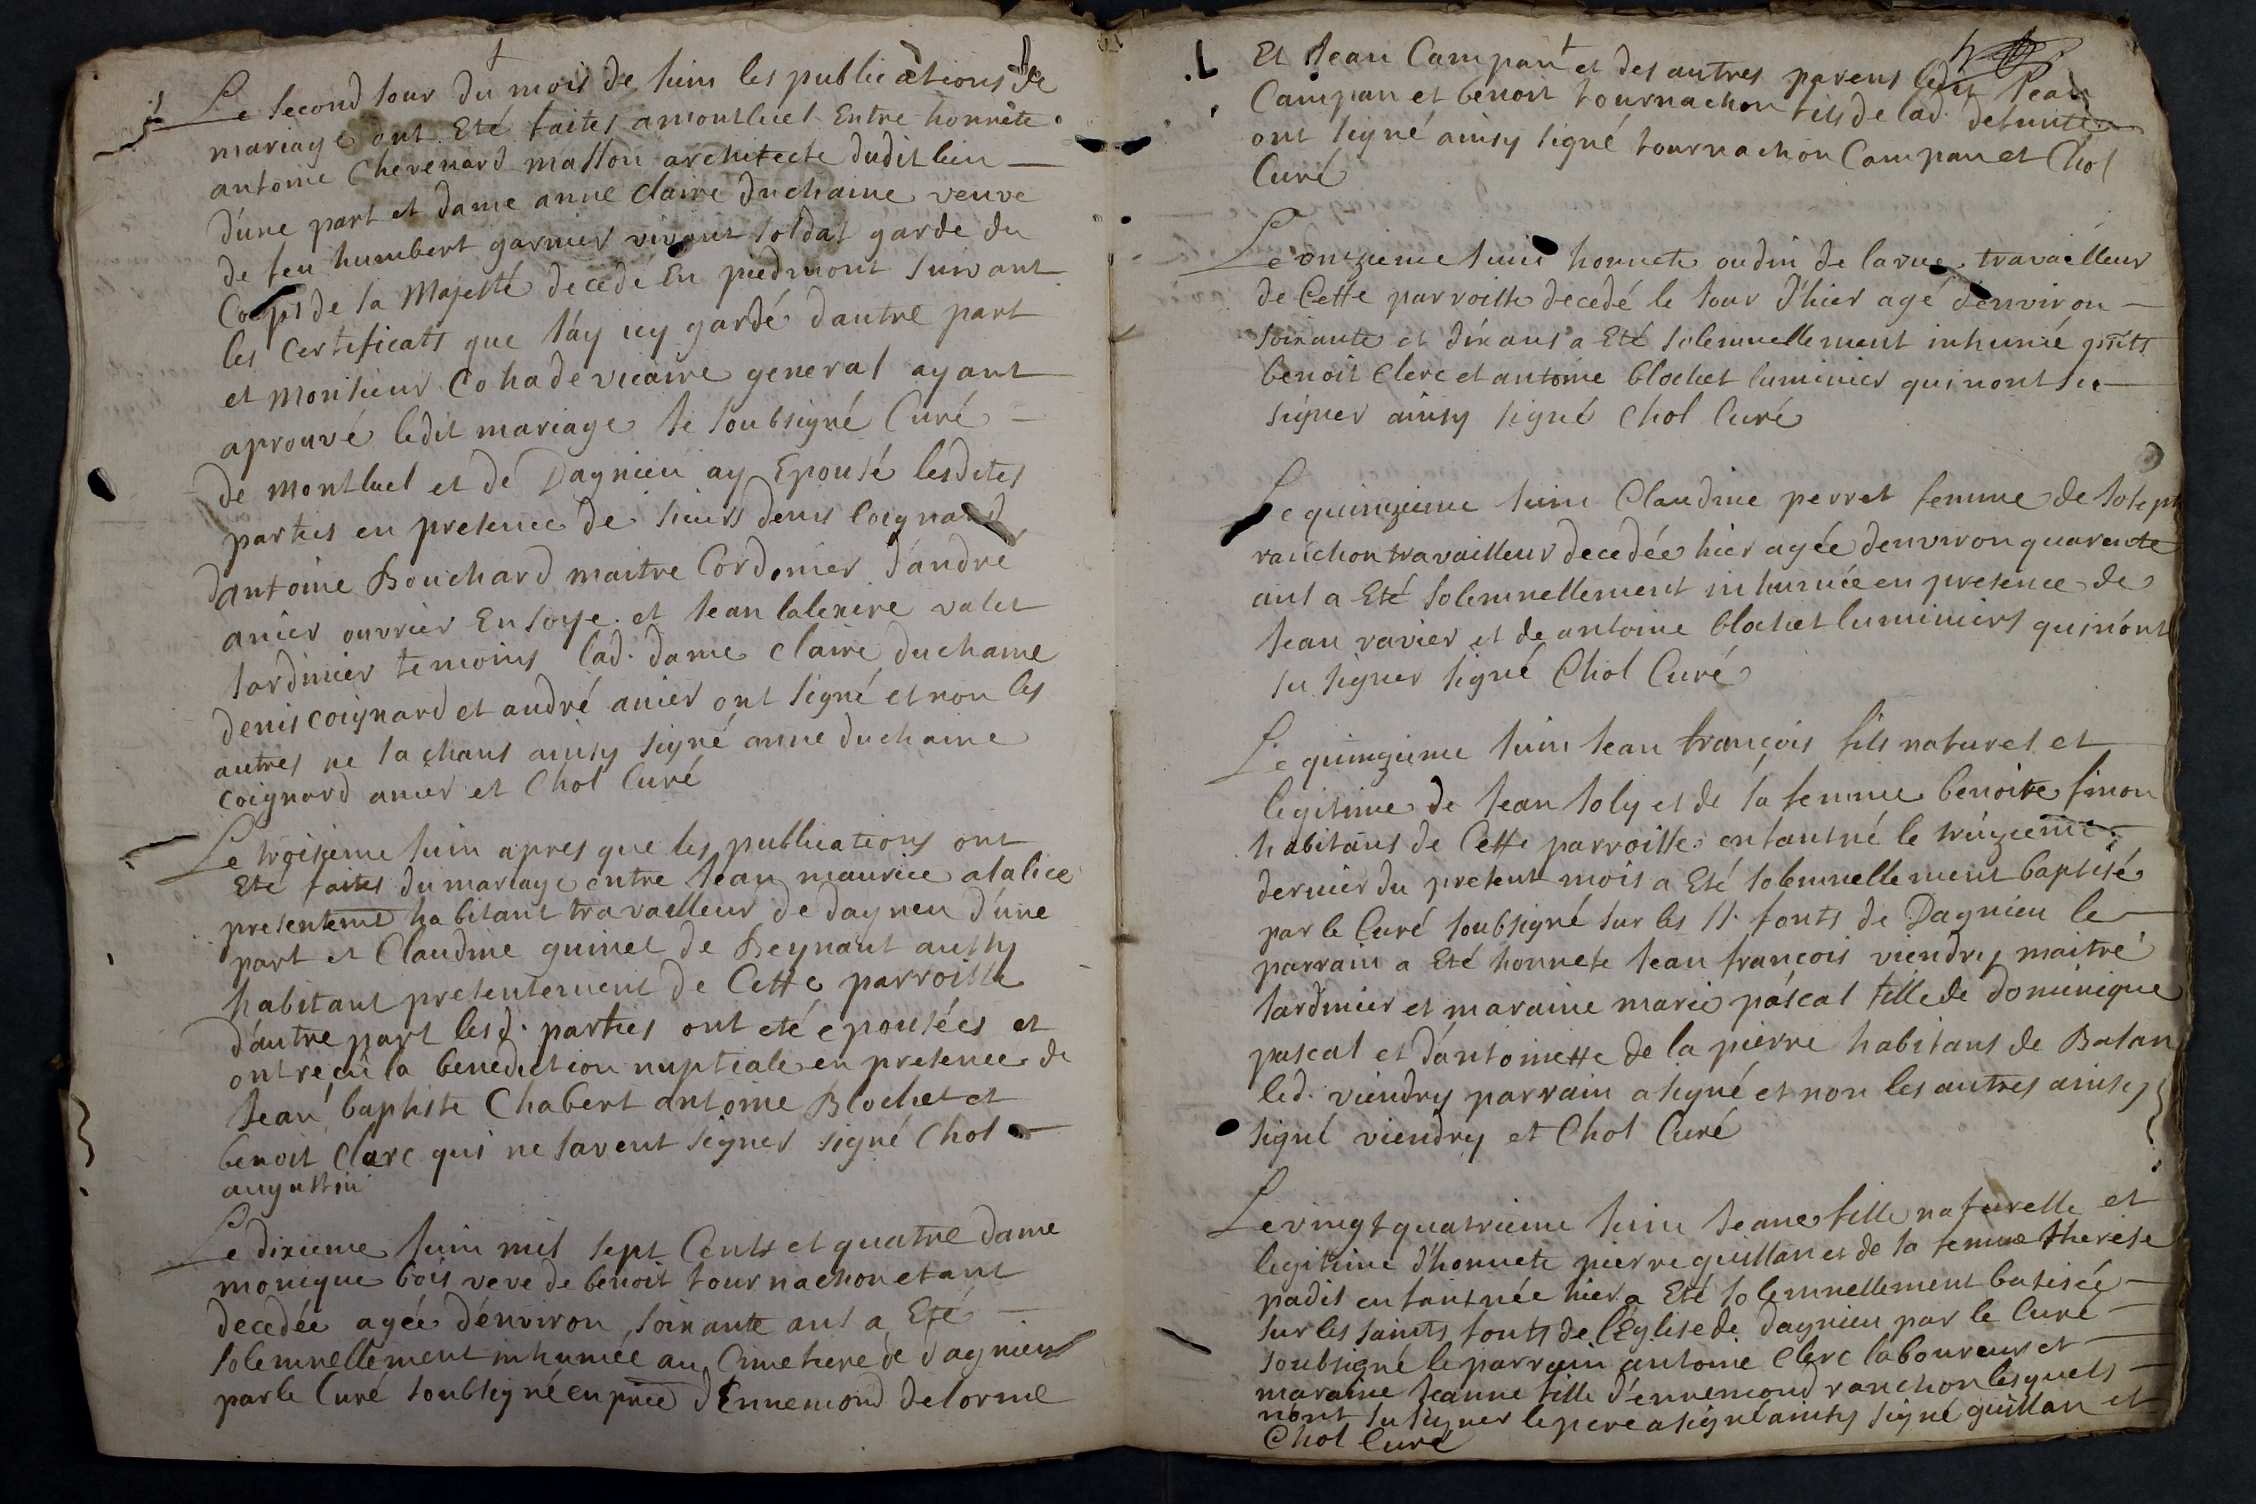 Le second jour du mois de Juin les publications de
mariage ont Eté faites a montluel Entre honnête
antoine Chevenard masson architecte dudit lieu
d'une part et dame anne claire duchaine veuve
de feu humbert garnier vivant soldat garde du
Corps de sa Majesté decedé En piedmont suivant
les Certificats que J'ay icy gardé d'autre part
et Monsieur Cohade vicaire general ayant
aprouvé ledit mariage Je soubsigné Curé
de Montluel et de Dagnieu ay Epousé lesdites
parties en presence de sieurs denis Coignard
d'antoine Bouchard maitre Cordonier d'andré
anier ouvrier En soye et Jean lalexere valet
Jardinier temoins lad. dame claire duchaine
denis coignard et andré anier ont signé et non les
autres ne sachans ainsy signé anne duchaine
coignard anier et Chol Curé
Le troisieme Juin apres que les publications ont
Eté faites du mariage entre Jean maurice alalice
presentemt habitant travailleur de dagneu d'une
part et Claudine guinet de Beynant aussy
habitant presentement de Cette parroisse
d'autre part lesd. parties ont eté epousées et
ont reçû la benediction nuptiale en presence de
Jean baptiste Chabert antoine Blochet et
benoit Clerc qui ne savent signer signé Chol
augustin
Le dixieme Juin mil sept Cents et quatre dame
monique bois veve de benoit tournachon etant
decedée agée d'environ soixante ans a Eté
solemnellement inhumée au Cimetiere de dagnieu
par le Curé soubsigné en prēē d'Ennemond delorme
Et Jean Campan et des autres parens ledit Jean
Campan et benoit tournachon fils de lad. defunte
ont signé ainsy signé tournachon Campan et Chol
Curé
Le onzieme Juin honnete oudin de larue travailleur
de Cette parroisse decedé le Jour d'hier agé d'environ
soixante et dix ans a Eté solemnellement inhumé pnts
benoit Clerc et antoine blochet luminier qui n'ont su
signer ainsy signé Chol Curé
Le quinzieme Juin Claudine perret femme de Joseph
ranchon travailleur decedée hier agée d'environ quarente
ans a Eté solemnellement inhumée en presence de
Jean ravier et de antoine blochet luminiers qui n'ont
su signer signé Chol Curé
Le quinzieme Juin Jean françois fils naturel et
legitime de Jean Joly et de sa femme benoite finon
habitans de Cette parroisse enfant né le treizieme
dernier du present mois a Eté solemnellement baptisé
par le Curé soubsigné sur les SS. fonts de Dagnieu le
parrain a Eté honnete Jean françois viendry maitre
Jardinier et maraine marie pascal fille de dominique
pascal et d'antoinette de la pierre habitans de Balan
led. viendry parrain a signé et non les autres ainsy
signé viendry et Chol Curé
Le vingt quatrieme Juin Jeane fille naturelle et
legitime d'honnete pierre guillan et de sa femme therese
padit enfant née hier a Eté solemnellement batisée
sur les saints fonts de l'Eglise de dagnieu par le Curé
soubsigné le parrain antoine Clerc laboureur et
maraine Jeanne fille d'ennemond ranchon lesquels
n'ont su signer le pere a signé ainsy signé guillan et
Chol Curé